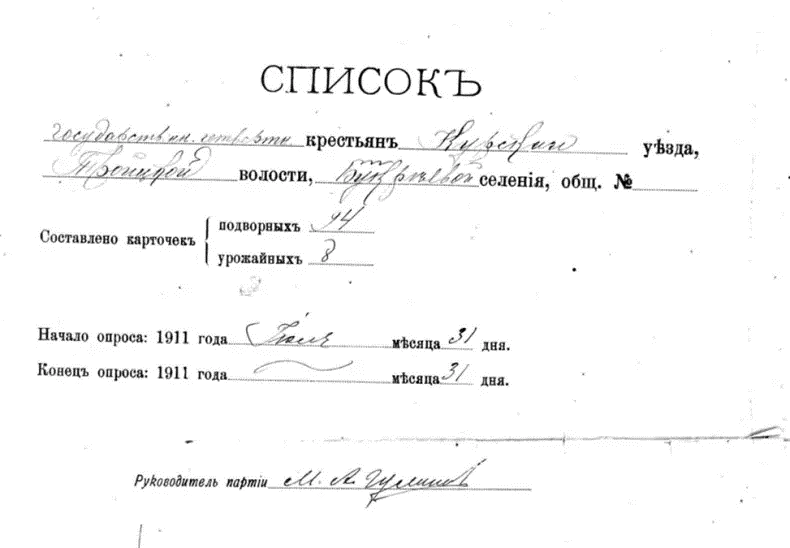 СПИСОКЪ
государствен. четвертн. крестьянъ Курскаго уѣзда,
Троицкой волости, селенія, общ. №
Составлено карточекъ
подворныхъ 94
урожайныхъ 8
Начало опроса: 1911 года Іюля мѣсяца 31 дня.
Конецъ опроса: 1911 года мѣсяца 31 дня.
Руководитель партіи М. А.